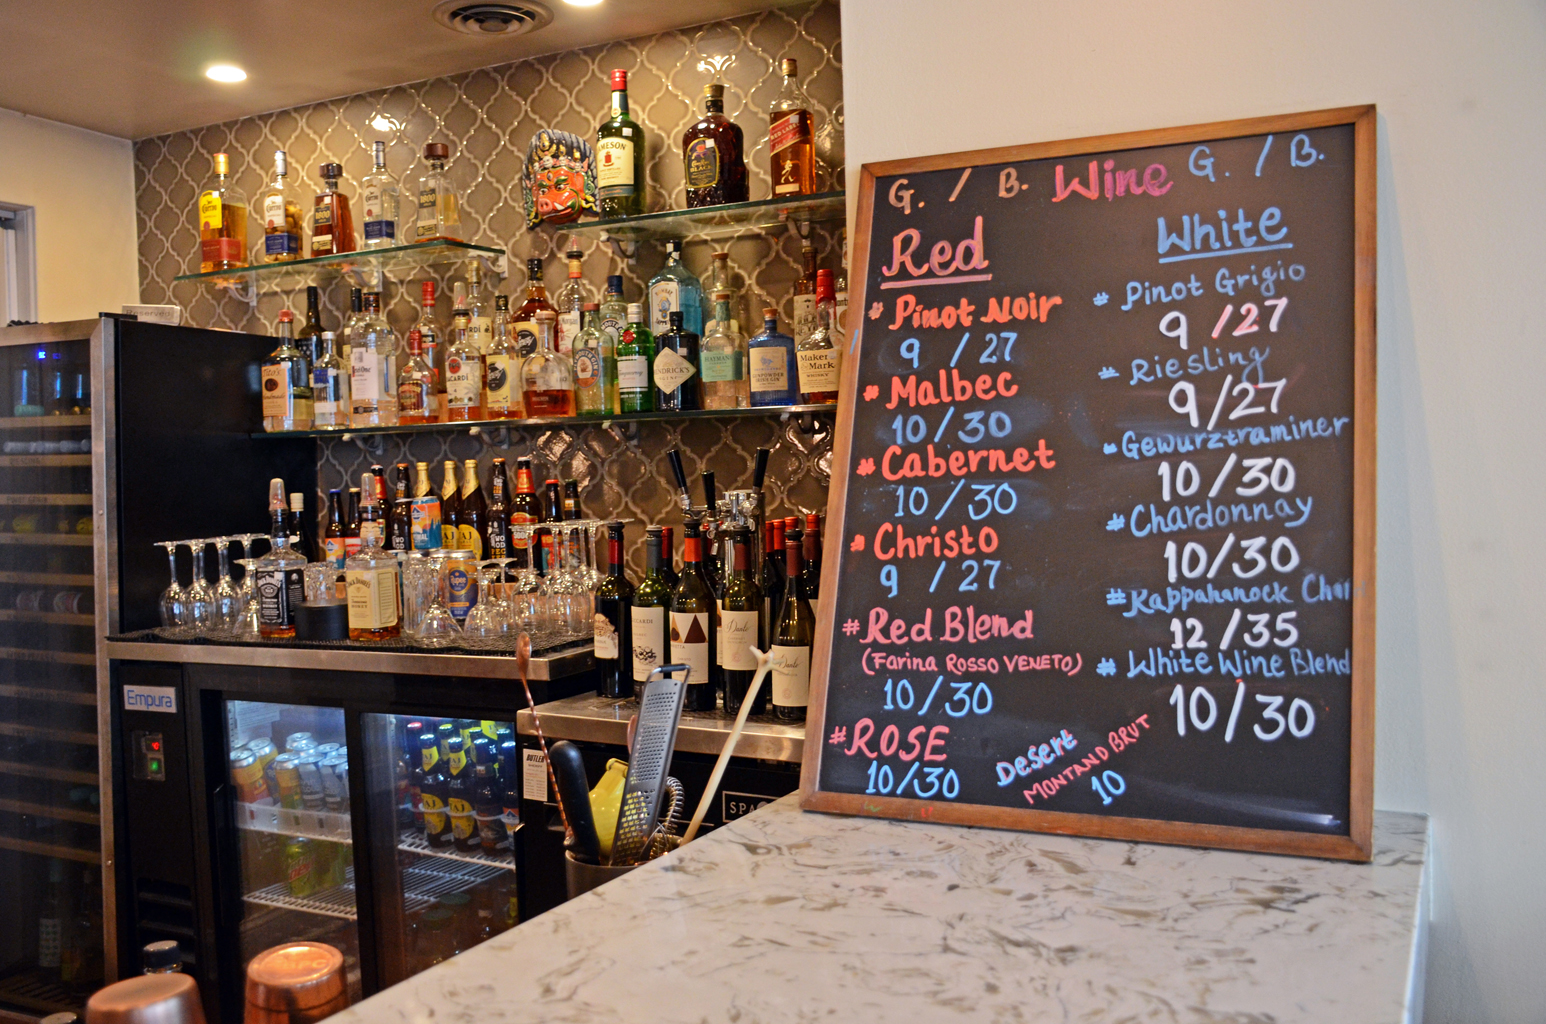 G. / B. Wine G. / B.
Red
# Pinot Noir
9 / 27
# Malbec
10 / 30
# Cabernet
10 / 30
# Christo
9 / 27
# Red Blend
(Farina Rosso VENETO)
10/30
# ROSE
10/30
White
# Pinot Grigio
9 /27
# Riesling
9/27
# Gewurztraminer
10/30
# Chardonnay
10/30
# Rappahanock Char
12/35
# White Wine Blend
10/30
Desert
MONTAND BRUT
10
Reserved
JAMESON
BLACK
RED LABEL
Tito's
BACARDI
HENDRICK'S
GUNPOWDER
IRISH GIN
Maker's
Mark
Dante
Dante
Empura
BUTLER
SPA